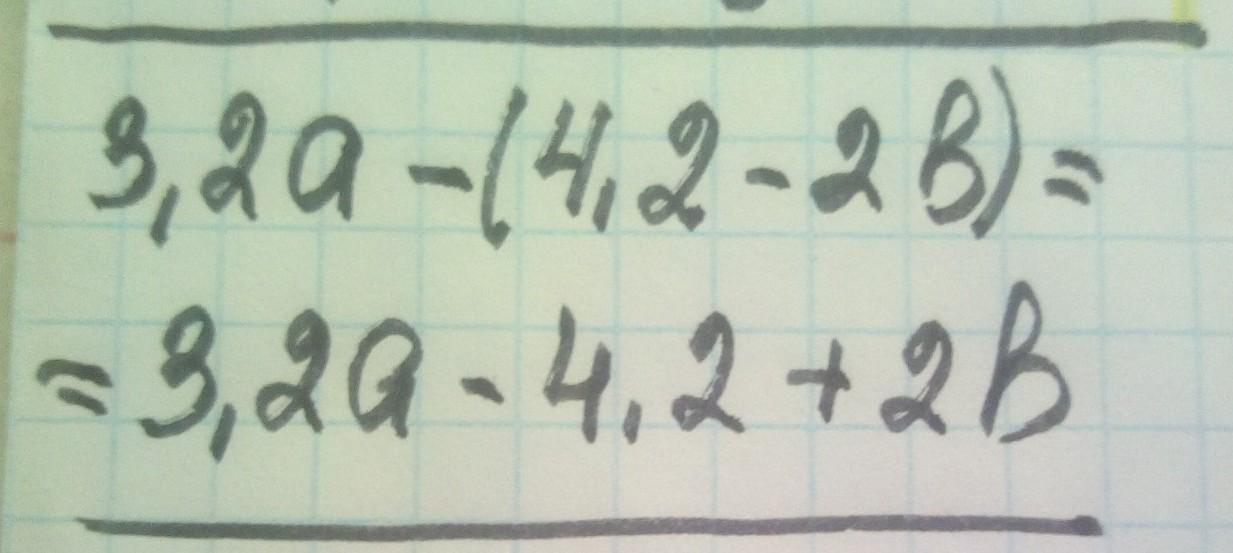 3,2a-(4,2-2в)=
=3,2a-4,2+2в